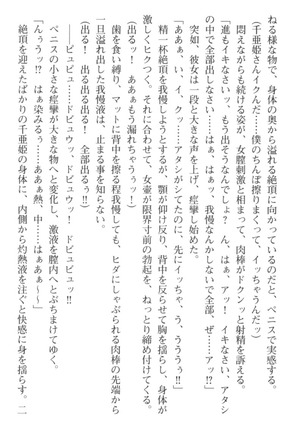 ねる様な物で、身体の奥から溢れる絶頂に向かっているのだと、ペニスで実感する。
（千亜姫さんイクんだ……僕のちんぽ擦りまくって、イッちゃうんだッ）
悶えながらも続ける姿が、女膣刺激と相まって、肉棒がドクンッと射精を訴える。
「進もイキなさいッ、もう出そうなんでしょ？　んッ、はぁッ、アッ！　イキなさい、アタシ
の中で全部出しなさい……はぁ、はぁッ、我慢なんかしないで全部、ぜ……アァッ」
突如、彼女は一段と大きな声を上げ、痙攣し始めた。
「ああぁ、いィ、イ、クッ……アタシがシてたのに、先にイッちゃ、う、うううぅ!!」
精一杯絶頂を我慢しようとするが、顎が仰け反り、背中を反らせて胸を揺らし、身体が
激しくヒクつく。それに合わせて、女壺が限界寸前の勃起を、ねっとり締め付けてくる。
（出るッ！　あぁぁもう漏れちゃうぅッ!!）
歯を食い縛り、マットに背中を擦る程我慢しても、ヒダにしゃぶられる肉棒の先端から
一旦溢れ出した我慢液は、止まる事を知らない。
（出る！　出る出る出る！　全部出るぅ!!）
――ビュビュッ、ドビュウッ！　ドビュッ!!
ペニスの小さな痙攣が大きな物へと変化し、激液を膣内へとぶちまけてゆく。
「んぅぅッ!?　はぁ染みるぅ……あぁぁ熱、中……はぁあぁ～」
絶頂を迎えたばかりの千亜姫の身体に、内側から灼熱液を注ぐと快感に身を揺らす。二